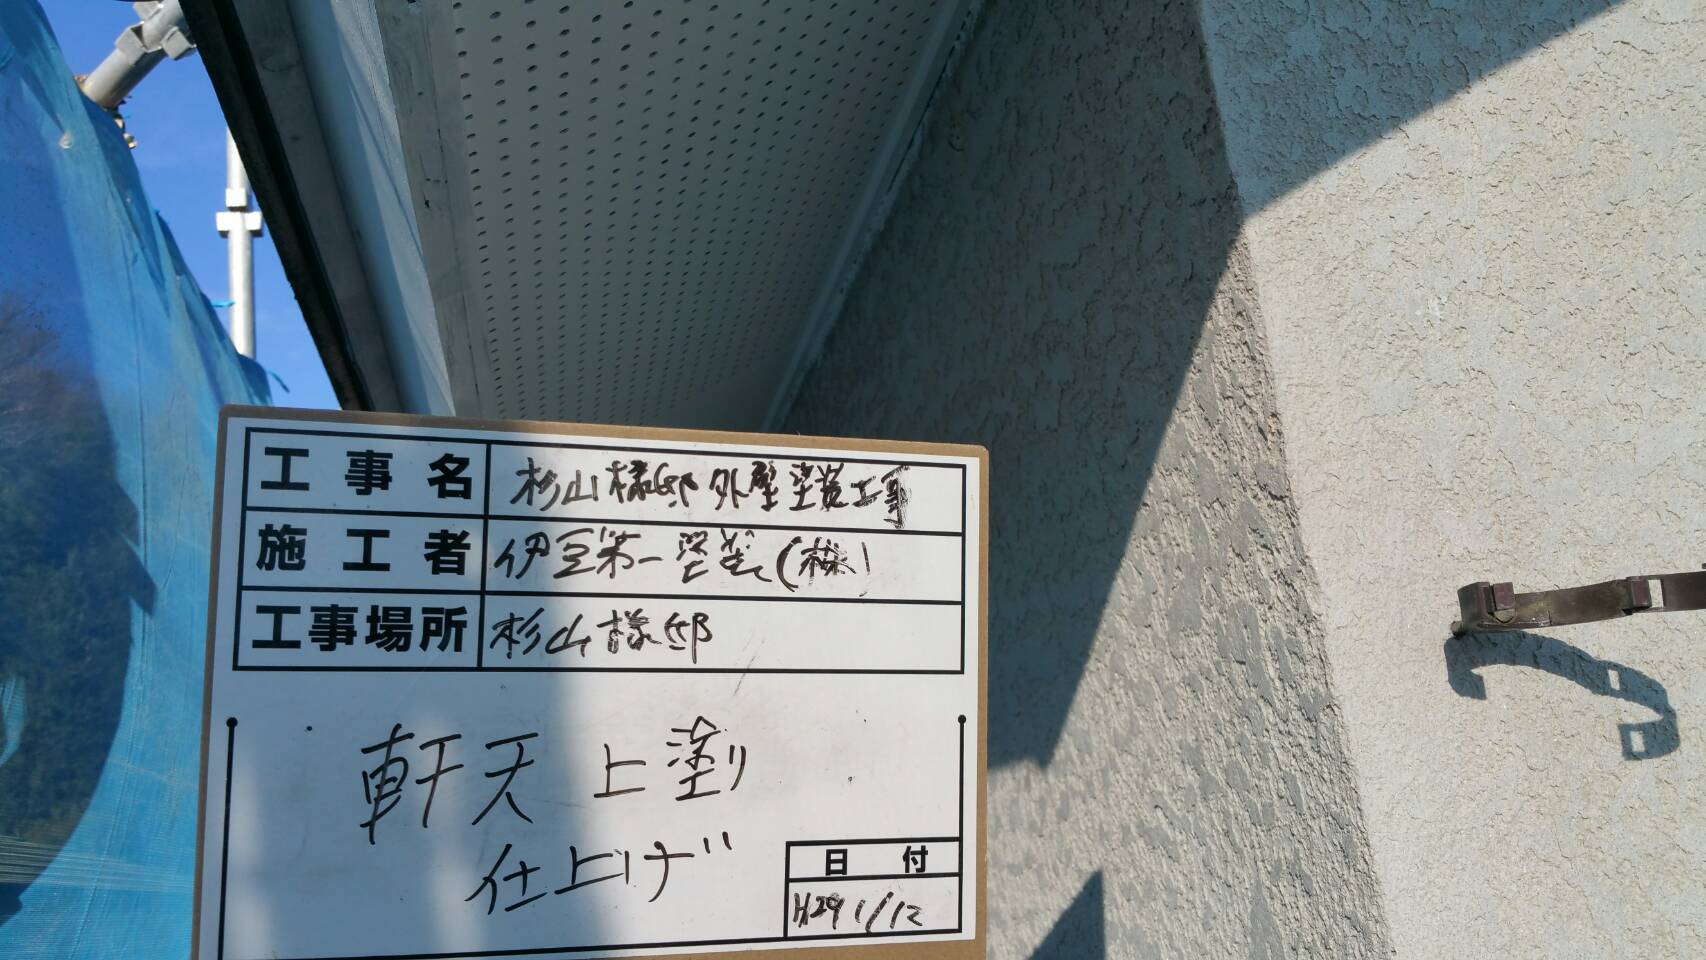 工事名 杉山様邸外壁塗装工事
施工者 伊豆第一塗装(株)
工事場所 杉山様邸
軒天上塗り
仕上げ
日付
H29 1/12